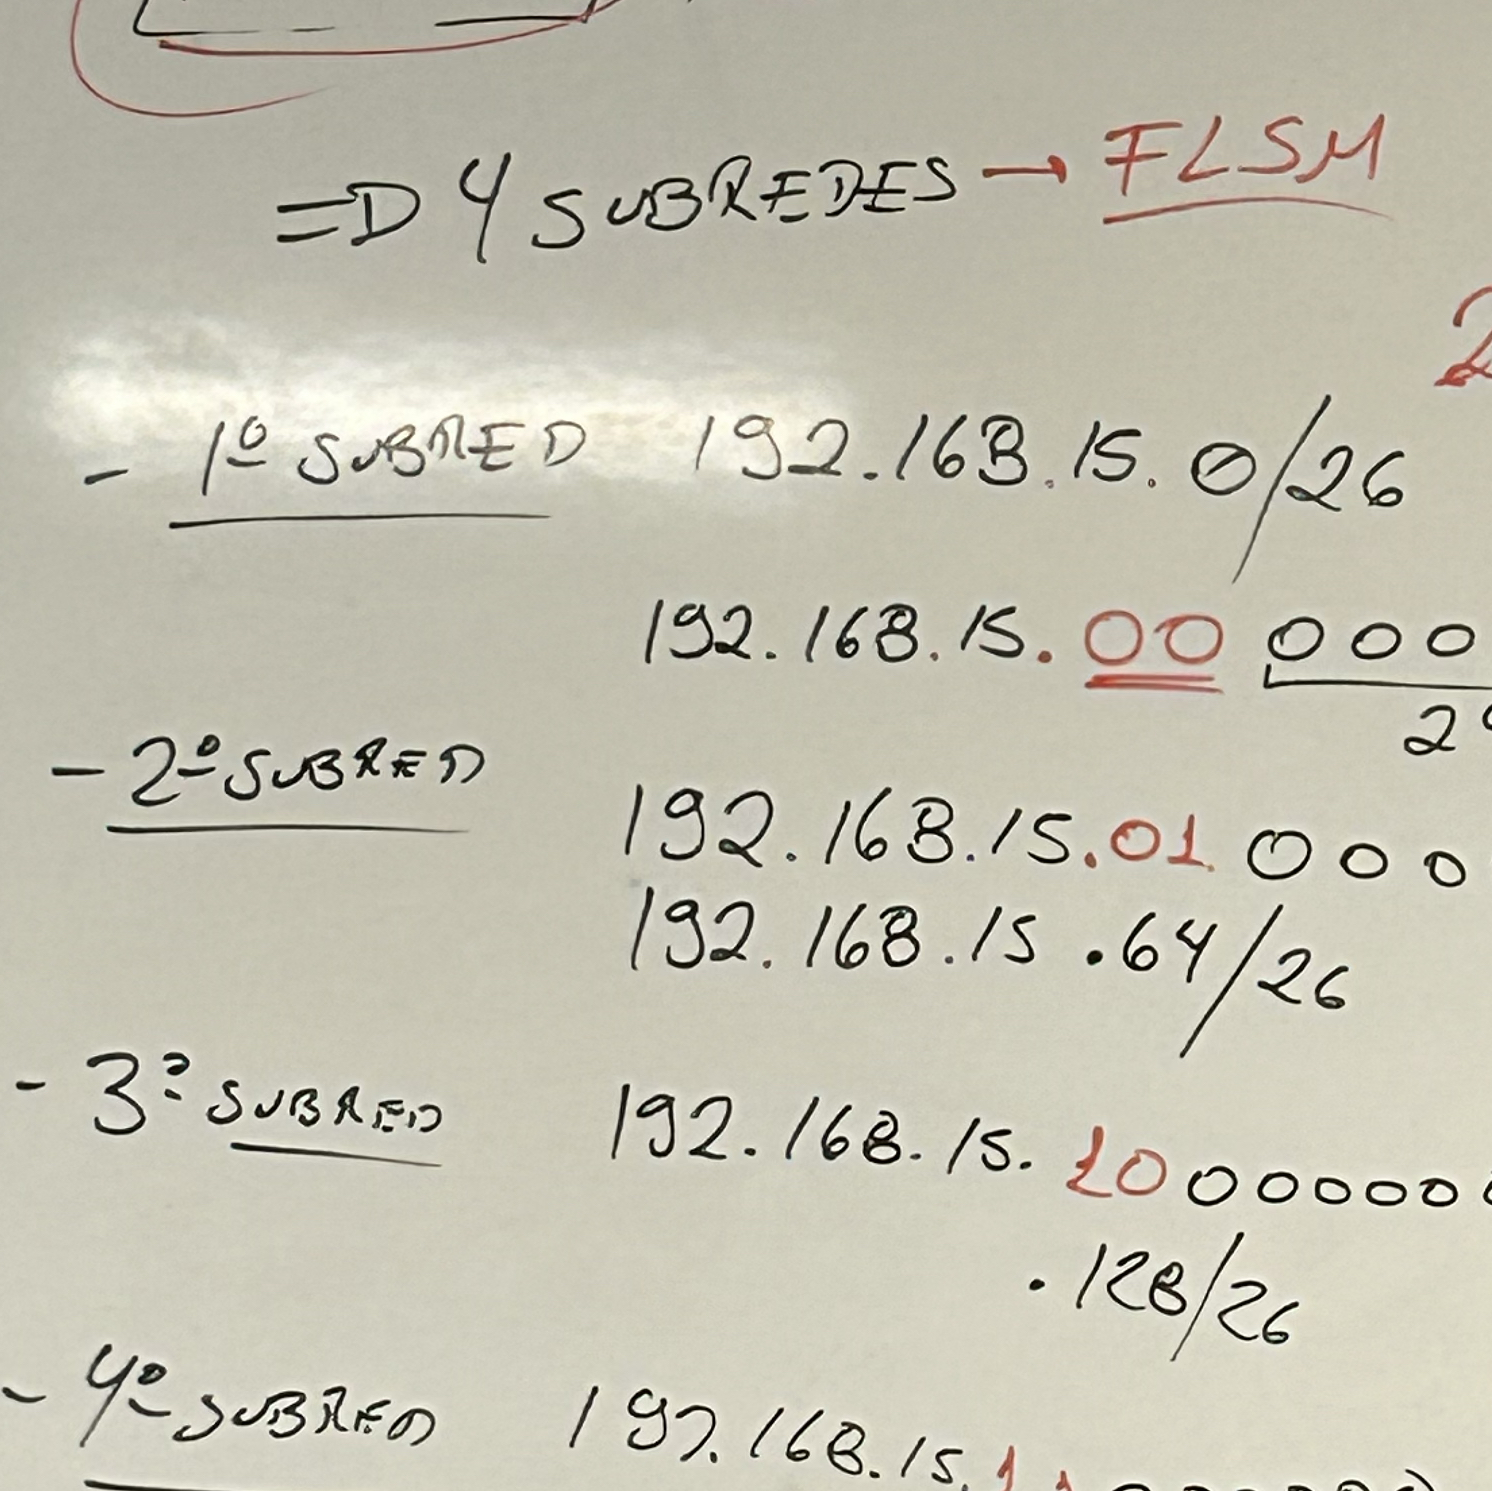 =D 4 SUBREDES → FLSM
2
- 1º SUBRED 192.168.15.0/26
192.168.15.00 000
2
- 2º SUBRED
192.168.15.01 000
192.168.15.64/26
- 3º SUBRED 192.168.15.10 00000
.128/26
- 4º SUBRED 192.168.15.11